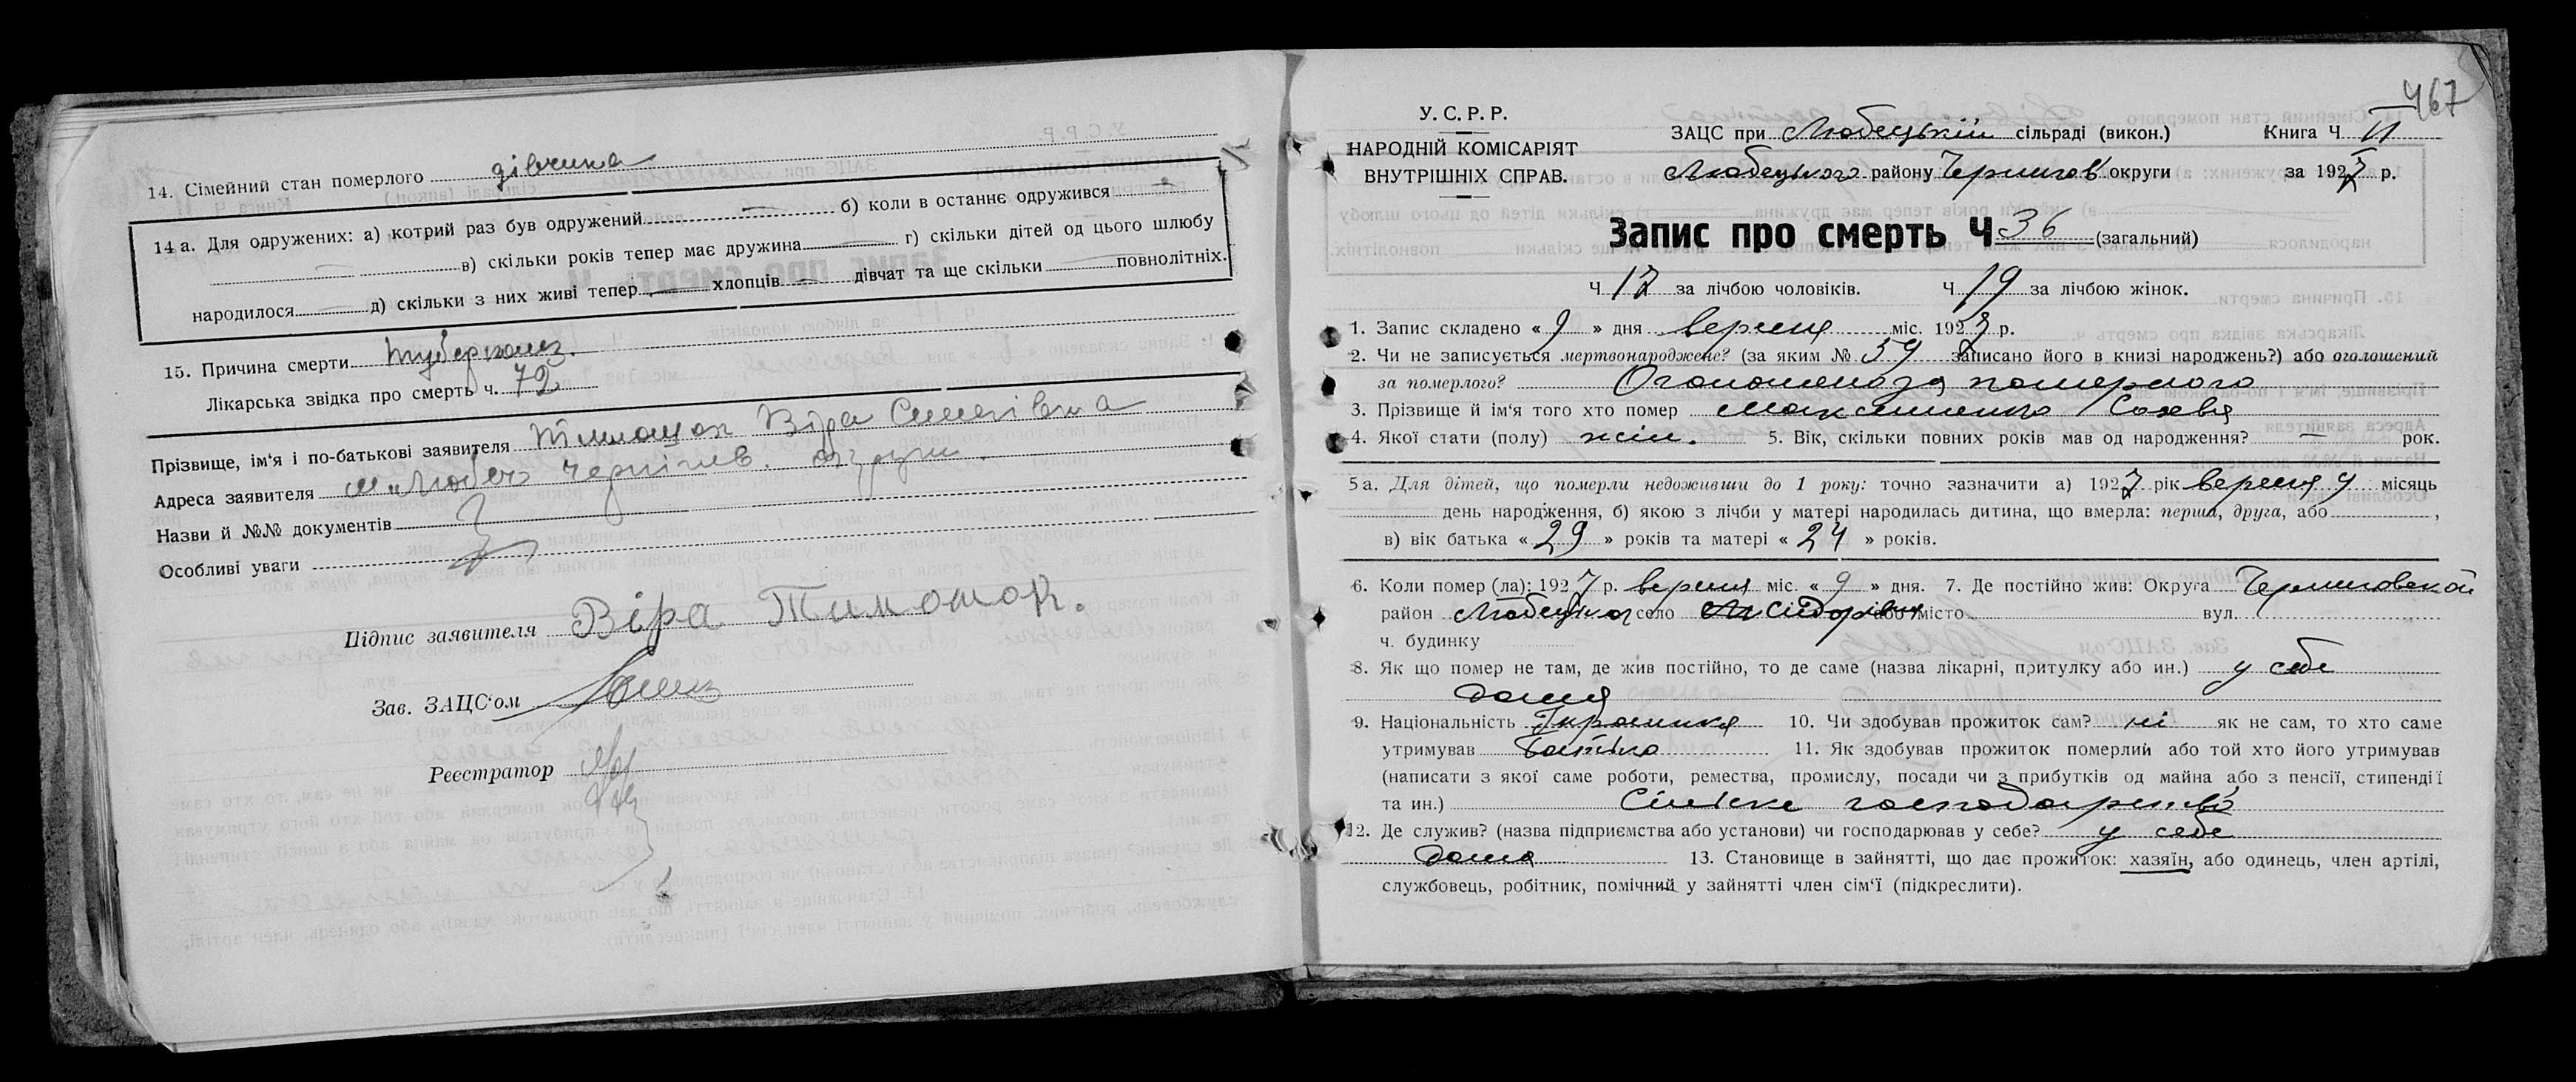 14. Сімейний стан померлого дівчина
14 а. Для одружених: а) котрий раз був одружений — б) коли в останнє одружився —
— в) скільки років тепер має дружина — г) скільки дітей од цього шлюбу
народилося — д) скільки з них живі тепер — хлопців — дівчат та ще скільки — повнолітніх.
15. Причина смерти туберкольоз.
Лікарська звідка про смерть ч. 72
Прізвище, ім'я і по-батькові заявителя Тимошок Віра
Адреса заявителя м. Любеч Чернігів. округи.
Назви й №№ документів
Особливі уваги
Підпис заявителя Віра Тимошок.
Зав. ЗАЦС'ом
Реєстратор
467
У. С. Р. Р.
НАРОДНІЙ КОМІСАРІЯТ
ВНУТРІШНІХ СПРАВ.
ЗАЦС при Любецькій сільраді (викон.) Книга Ч II
Любецького району Чернигов округи за 1927 р.
Запис про смерть Ч 36 (загальний)
Ч 17 за лічбою чоловіків. Ч 19 за лічбою жінок.
1. Запис складено « 9 » дня вересня міс. 1927 р.
2. Чи не записується мертвонароджене? (за яким № 59 записано його в книзі народжень?) або оголошений
за померлого? Оголошено за померлого
3. Прізвище й ім'я того хто помер Максименко
4. Якої стати (полу) жін. 5. Вік, скільки повних років мав од народження? — рок.
5 а. Для дітей, що померли недоживши до 1 року: точно зазначити а) 1927 рік вересня 9 місяць
день народження, б) якою з лічби у матері народилась дитина, що вмерла: перша, друга, або ,
в) вік батька « 29 » років та матері « 24 » років.
6. Коли помер (ла): 1927 р. вересня міс. « 9 » дня. 7. Де постійно жив: Округа Черниговской
район село або місто вул.
ч. будинку
8. Як що помер не там, де жив постійно, то де саме (назва лікарні, притулку або ин.) у себе
дома
9. Національність Украинка 10. Чи здобував прожиток сам? ні як не сам, то хто саме
утримував батько 11. Як здобував прожиток померлий або той хто його утримував
(написати з якої саме роботи, ремества, промислу, посади чи з прибутків од майна або з пенсії, стипендії
та ин.) Сільске господарство
12. Де служив? (назва підприємства або установи) чи господарював у себе? у себе
дома 13. Становище в зайнятті, що дає прожиток: хазяїн, або одинець, член артілі,
службовець, робітник, помічний у зайнятті член сім'ї (підкреслити).